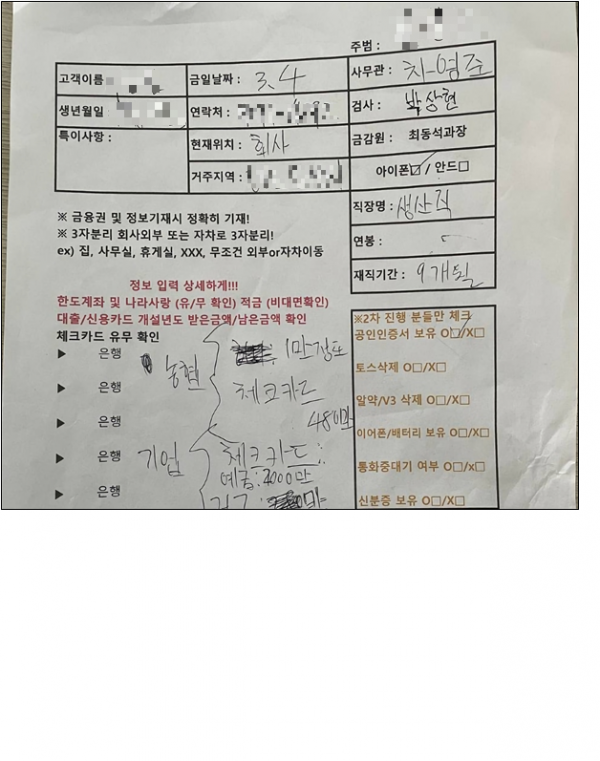 주범 :
고객이름
금일날짜 : 3.4
사무관 : 차영주
생년월일
연락처 :
검사 : 박상현
특이사항 :
현재위치 : 회사
금감원 : 최동석과장
거주지역 :
아이폰☑ / 안드□
직장명 : 생산직
연봉 :
재직기간 : 9개월
※ 금융권 및 정보기재시 정확히 기재!
※ 3자분리 회사외부 또는 자차로 3자분리!
ex) 집, 사무실, 휴게실, XXX, 무조건 외부or자차이동
정보 입력 상세하게!!!
한도계좌 및 나라사랑 (유/무 확인) 적금 (비대면확인)
대출/신용카드 개설년도 받은금액/남은금액 확인
체크카드 유무 확인
▶ 은행 농협 1만정도
▶ 은행 체크카드
▶ 은행 480만
▶ 은행 기업 체크카드
예금:2000만
▶ 은행
※2차 진행 분들만 체크
공인인증서 보유 O□/X□
토스삭제 O□/X□
알약/V3 삭제 O□/X□
이어폰/배터리 보유 O□/X□
통화중대기 여부 O□/x□
신분증 보유 O□/X□